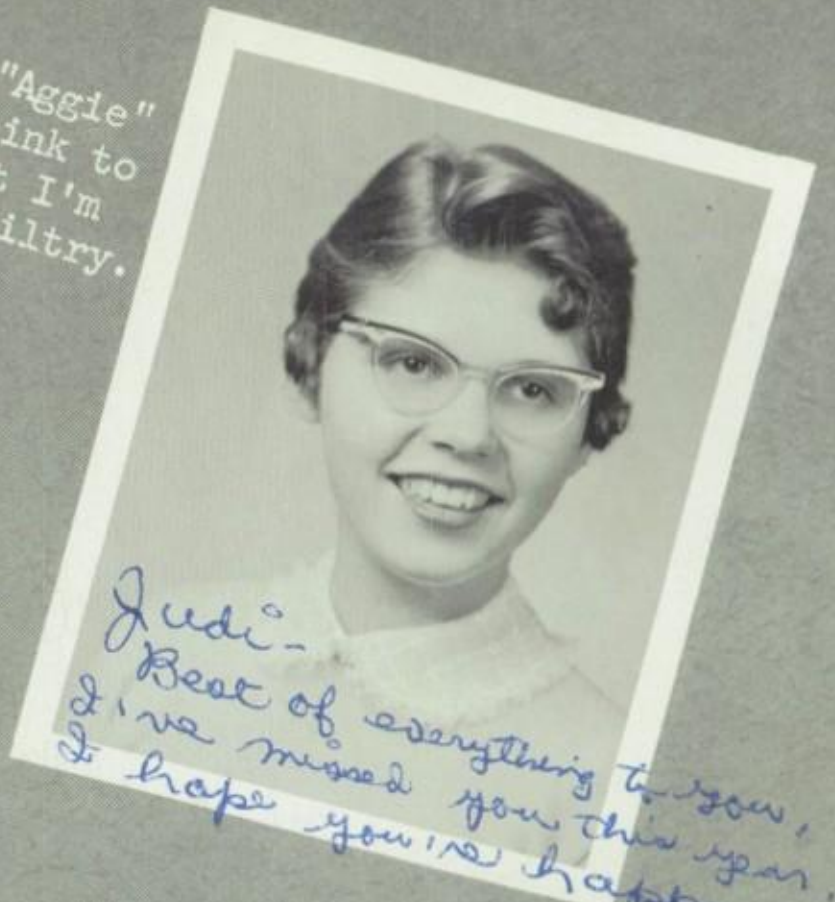 "Aggie"
ink to
t I'm
iltry.
Judi-
Best of everything to you,
I've missed you this year.
I hope you're happ